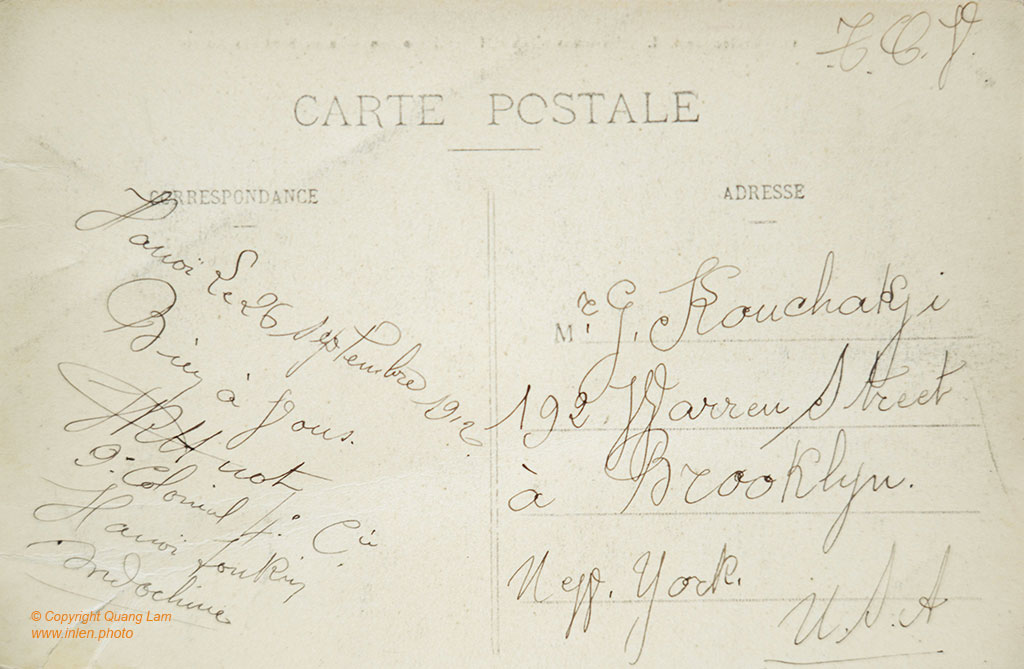 T.C.V.
CARTE POSTALE
CORRESPONDANCE
Hanoï Le 26 Septembre 1912
Bien
à Vous.
9e Colonial
Hanoï Tonkin
Indochine
ADRESSE
Mr G. Kouchakji
192 Warren Street
à Brooklyn.
New. York.
U.S.A
© Copyright Quang Lam
www.inlen.photo